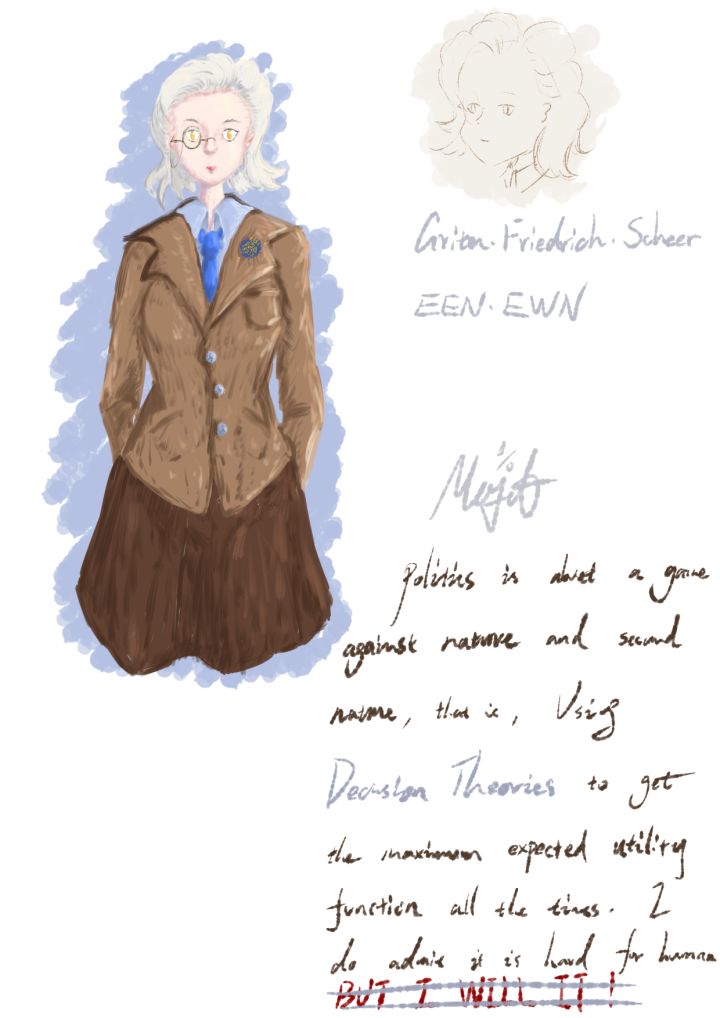 Friedrich. Scheer
EEN. EWN
Politics is about a game
against nature and second
nature, that is, Using
Decision Theories to get
the maximum expected utility
function all the times. I
do admit it is hard for human
BUT I WILL IT!